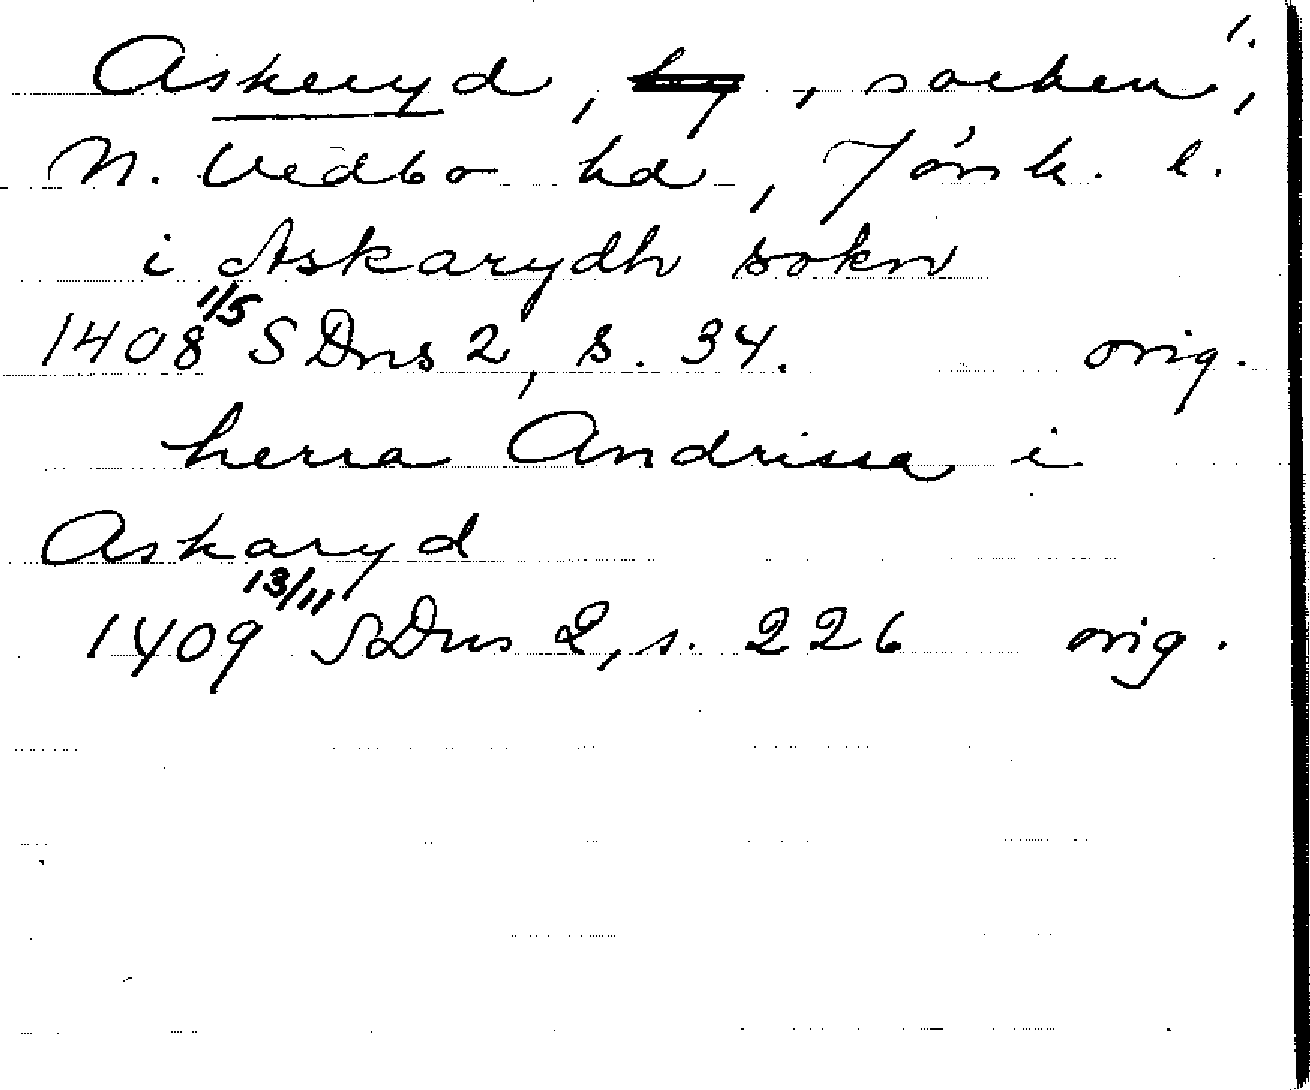 1.
Askeryd, by, socken,
N. Vedbo hd, Jönk. l.
i Askarydh sokn
1408 1/5 SDns 2, s. 34. orig.
herra Andrissa i
Askaryd
1409 13/11 SDns 2, s. 226 orig.